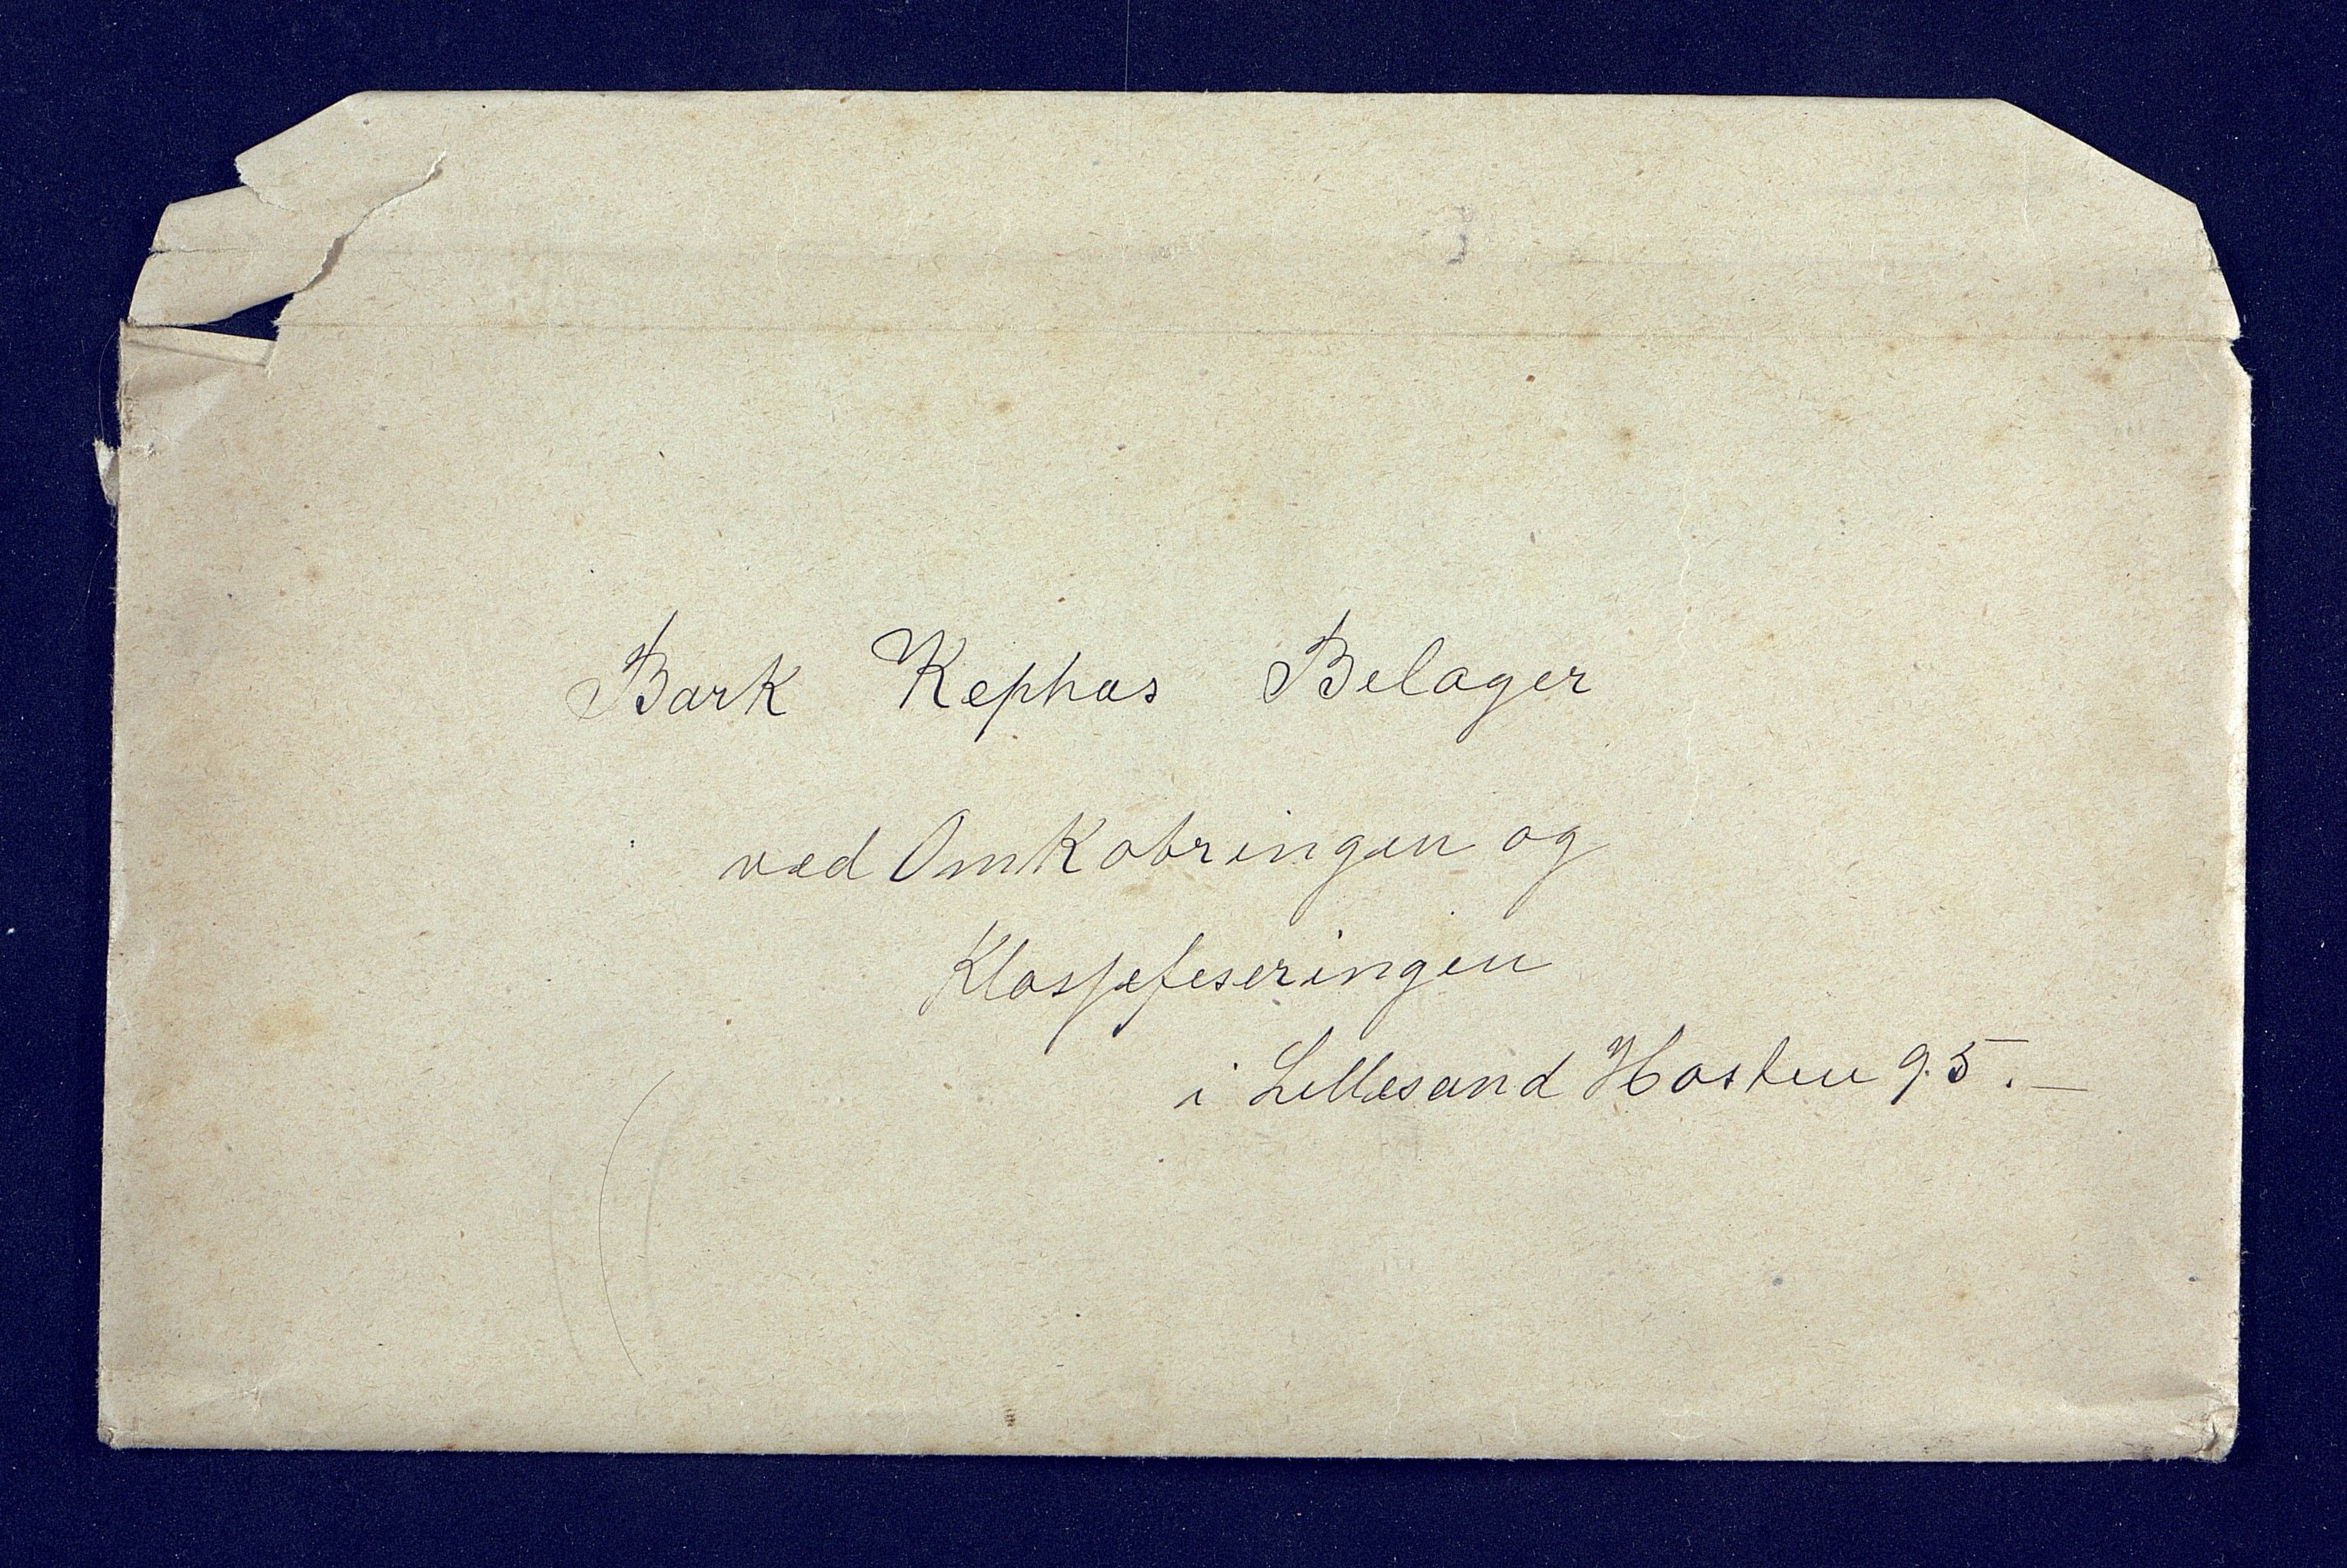 Bark Kephas Belager
ved Omkobringen og
Klassefeseringen
i Lillesand Hosten 95.—